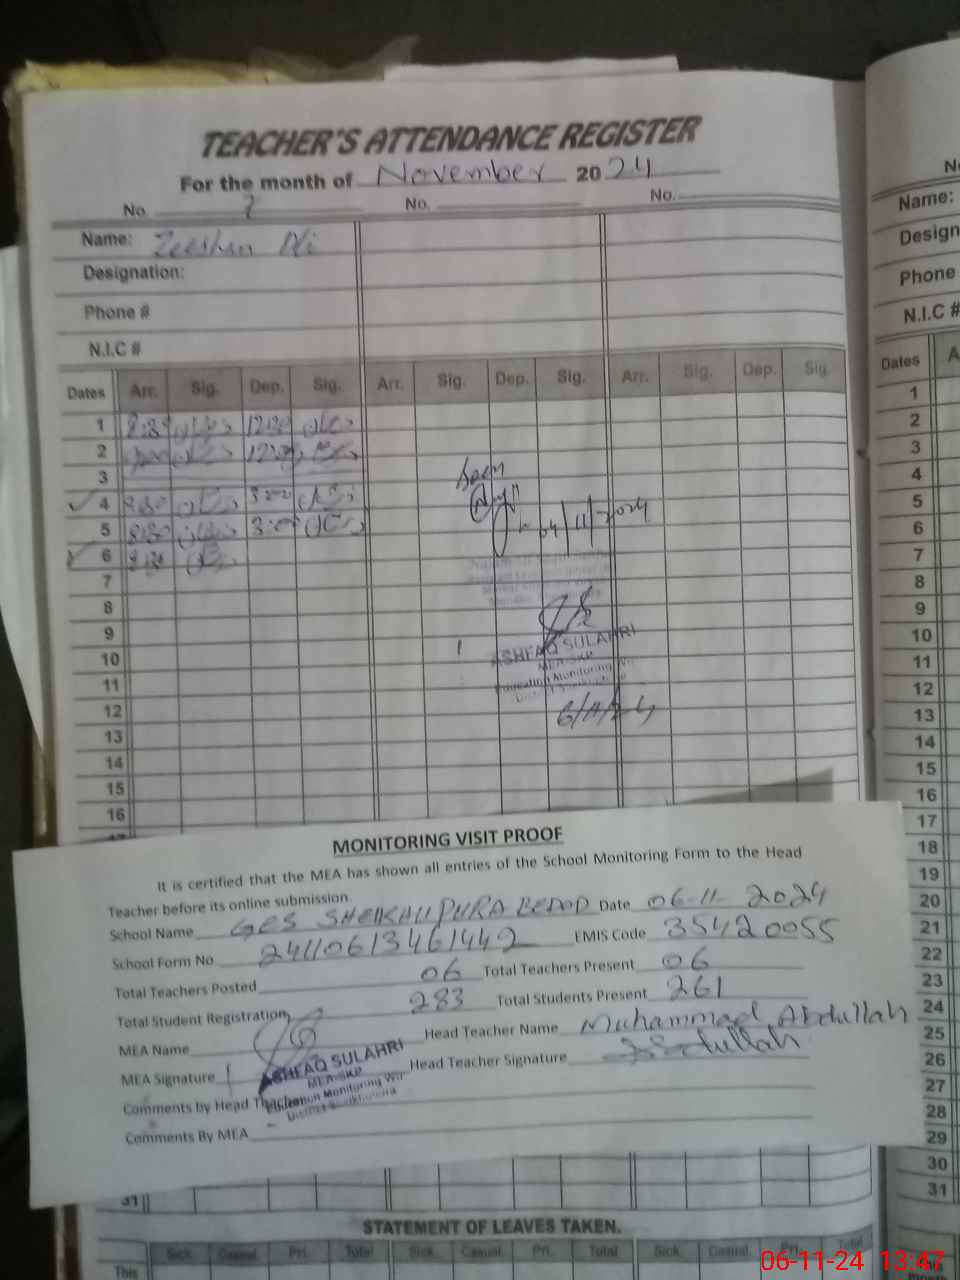 TEACHER'S ATTENDANCE REGISTER
For the month of November 2024
No. 7 No. No.
Name: Zeeshan Ali
Designation:
Phone #
N.I.C #
Dates Arr. Sig. Dep. Sig. Arr. Sig. Dep. Sig. Arr. Sig. Dep. Sig.
1 8:30 12:30
2 12:30
3
4 8:30 3:00
5 8:30 3:00
6 8:30
7
8
9
10
11
12
13
14
15
16
Seen
04/11/2024
ASHFAQ SULAHRI
MEA-SKP
Education Monitoring
6/11/24
MONITORING VISIT PROOF
It is certified that the MEA has shown all entries of the School Monitoring Form to the Head
Teacher before its online submission.
School Name GES SHEIKHUPURA Date 06-11-2024
School Form No 24110613461442 EMIS Code 35420055
Total Teachers Posted 06 Total Teachers Present 06
Total Student Registration 283 Total Students Present 261
MEA Name Head Teacher Name Muhammad Abdullah
MEA Signature Head Teacher Signature Abdullah
ASHFAQ SULAHRI
MEA-SKP
Education Monitoring
District Sheikhupura
Comments by Head Teacher
Comments By MEA
31
STATEMENT OF LEAVES TAKEN.
Sick. Casual. Pri. Total Sick. Casual. Pri. Total Sick. Casual. Pri. Total
This
Name:
Design
Phone
N.I.C #
Dates A
1
2
3
4
5
6
7
8
9
10
11
12
13
14
15
16
17
18
19
20
21
22
23
24
25
26
27
28
29
30
31
06-11-24 13:47